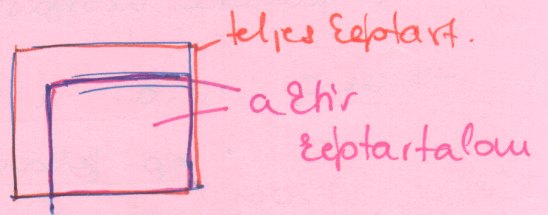 teljes képtart.
aktív
képtartalom